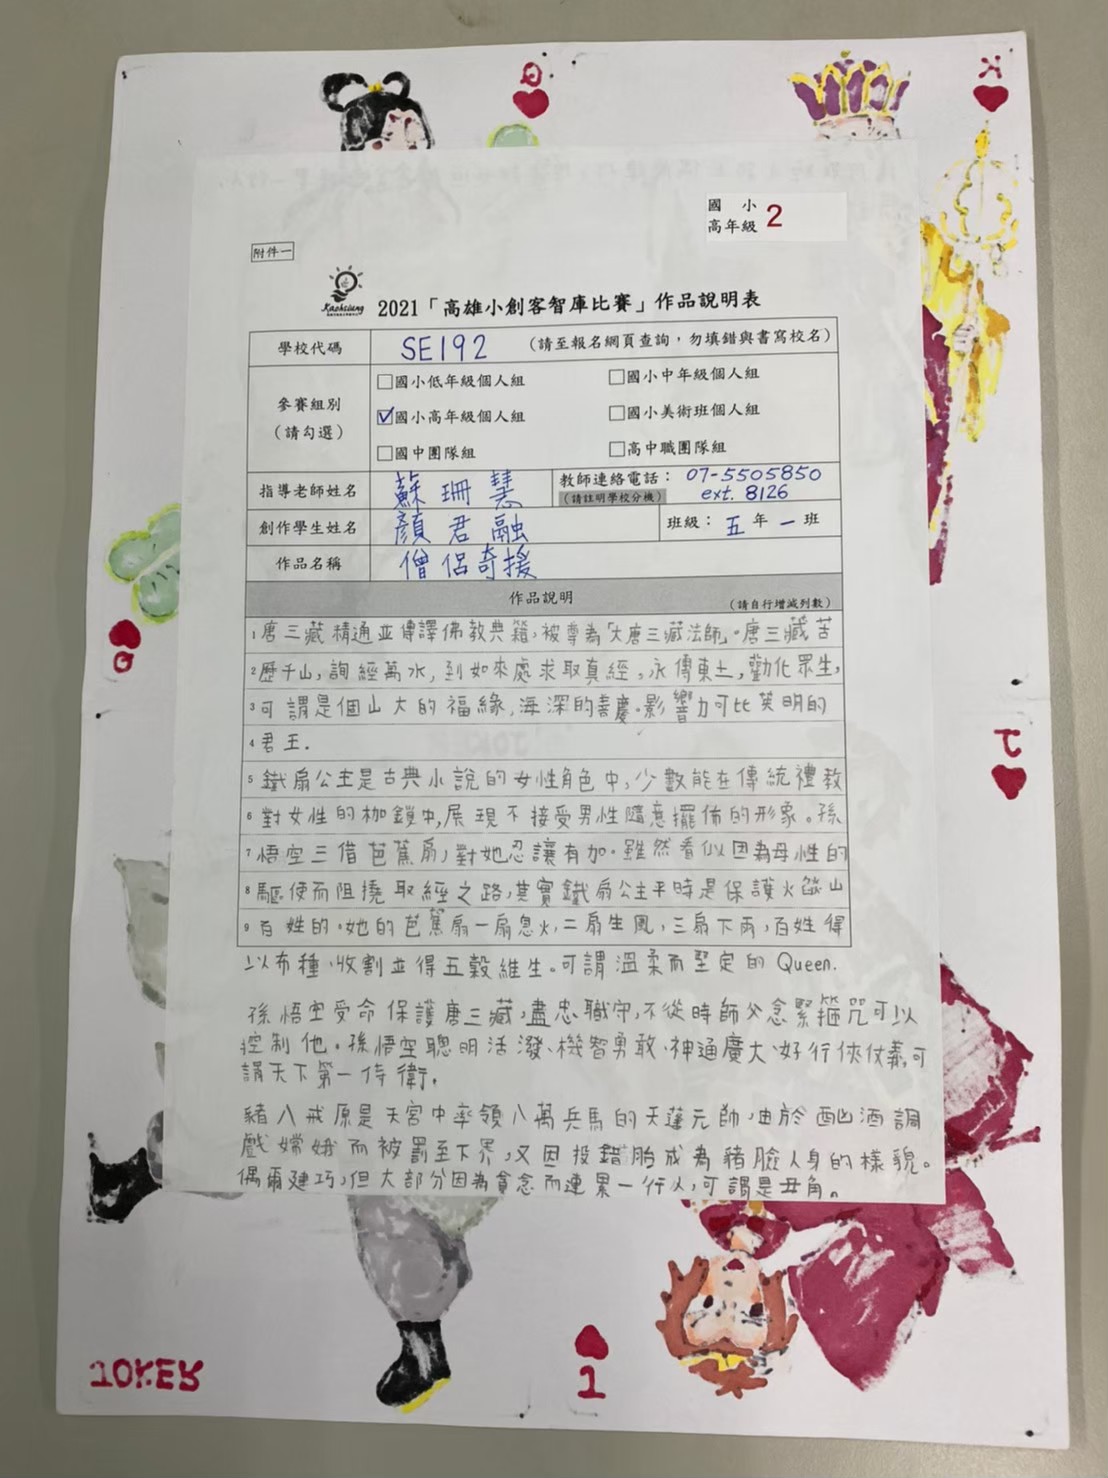 Q
K
國小
高年級 2
附件一
Kaohsiung
2021「高雄小創客智庫比賽」作品說明表
學校代碼 SE192 (請至報名網頁查詢，勿填錯與書寫校名)
參賽組別
(請勾選)
□國小低年級個人組 □國小中年級個人組
☑國小高年級個人組 □國小美術班個人組
□國中團隊組 □高中職團隊組
指導老師姓名 蘇珊慧 教師連絡電話： 07-5505850
(請註明學校分機) ext. 8126
創作學生姓名 顏君融 班級：五年一班
作品名稱 僧侶奇援
作品說明 (請自行增減列數)
1 唐三藏精通並傳譯佛教典籍，被尊為「大唐三藏法師」。唐三藏苦
2 歷千山，詢經萬水，到如來處求取真經，永傳東土，勸化眾生，
3 可謂是個山大的福緣，海深的善慶。影響力可比英明的
4 君王.
5 鐵扇公主是古典小說的女性角色中，少數能在傳統禮教
6 對女性的枷鎖中，展現不接受男性隨意擺佈的形象。孫
7 悟空三借芭蕉扇，對她忍讓有加。雖然看似因為母性的
8 驅使而阻撓取經之路，其實鐵扇公主平時是保護火燄山
9 百姓的，她的芭蕉扇一扇息火，二扇生風，三扇下雨，百姓得
以布種、收割並得五穀維生。可謂溫柔而堅定的 Queen.
孫悟空受命保護唐三藏，盡忠職守，不從時師父念緊箍咒可以
控制他。孫悟空聰明活潑、機智勇敢、神通廣大、好行俠仗義，可
謂天下第一侍衛.
豬八戒原是天宮中率領八萬兵馬的天蓬元帥，由於酗酒調
戲嫦娥而被罰至下界，又因投錯胎成為豬臉人身的樣貌。
偶爾建功，但大部分因為貪念而連累一行人，可謂是丑角。
Q
J
JOKER
1